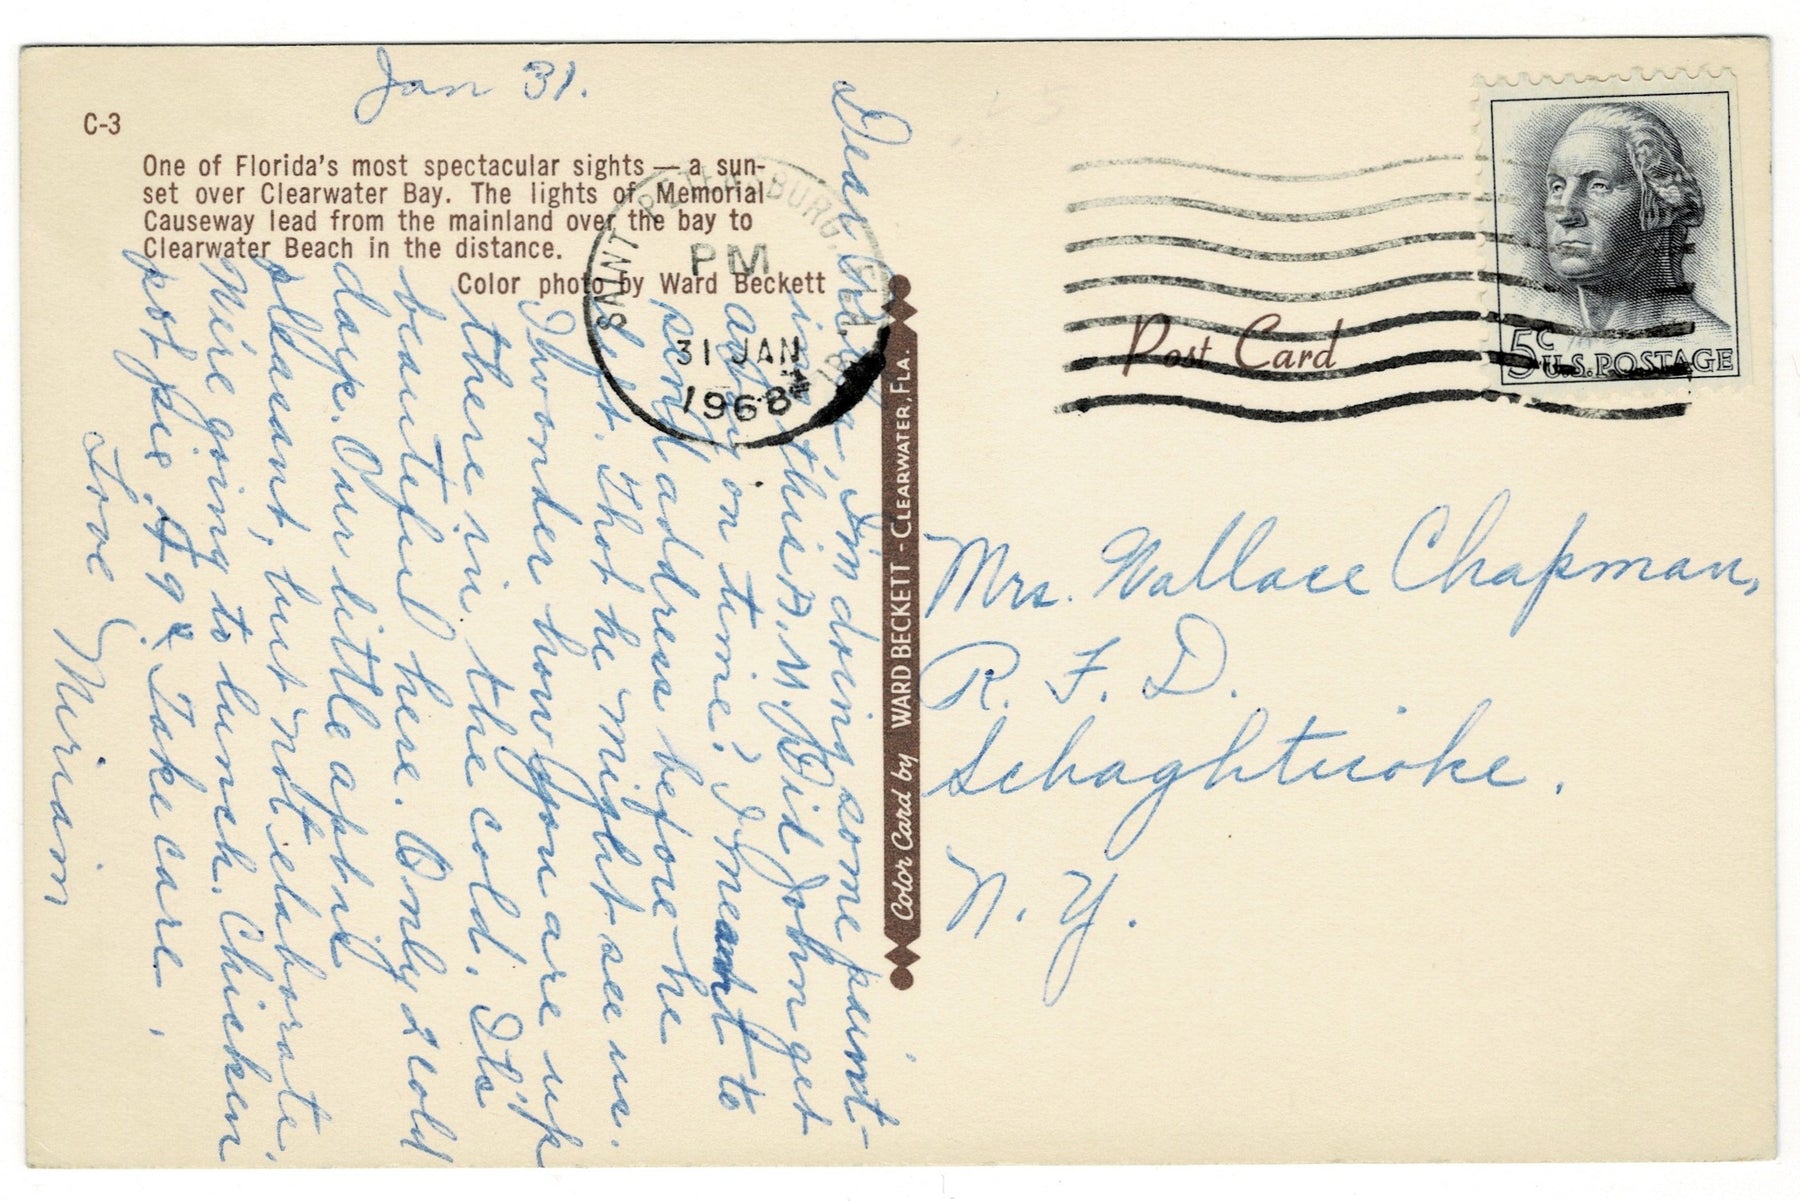 Jan 31.
C-3
One of Florida's most spectacular sights — a sun-
set over Clearwater Bay. The lights of Memorial
Causeway lead from the mainland over the bay to
Clearwater Beach in the distance.
Color photo by Ward Beckett
SAINT PETERSBURG, FLA
PM
31 JAN
1968
Dear I'm doing some paint-
ing this A.M. Did John get
away on time? I meant to
send address before he
left. Thot he might see us.
I wonder how you are up
there in the cold. It's
beautiful here. Only 2 cold
days. Our little apt is
pleasant, but not elaborate.
We're going to lunch. Chicken
pot pie 49¢ Take care.
Love Miriam
Color Card by WARD BECKETT - CLEARWATER, FLA.
Post Card
5c
U.S. POSTAGE
Mrs. Wallace Chapman,
R. F. D.
Schaghticoke.
N. Y.